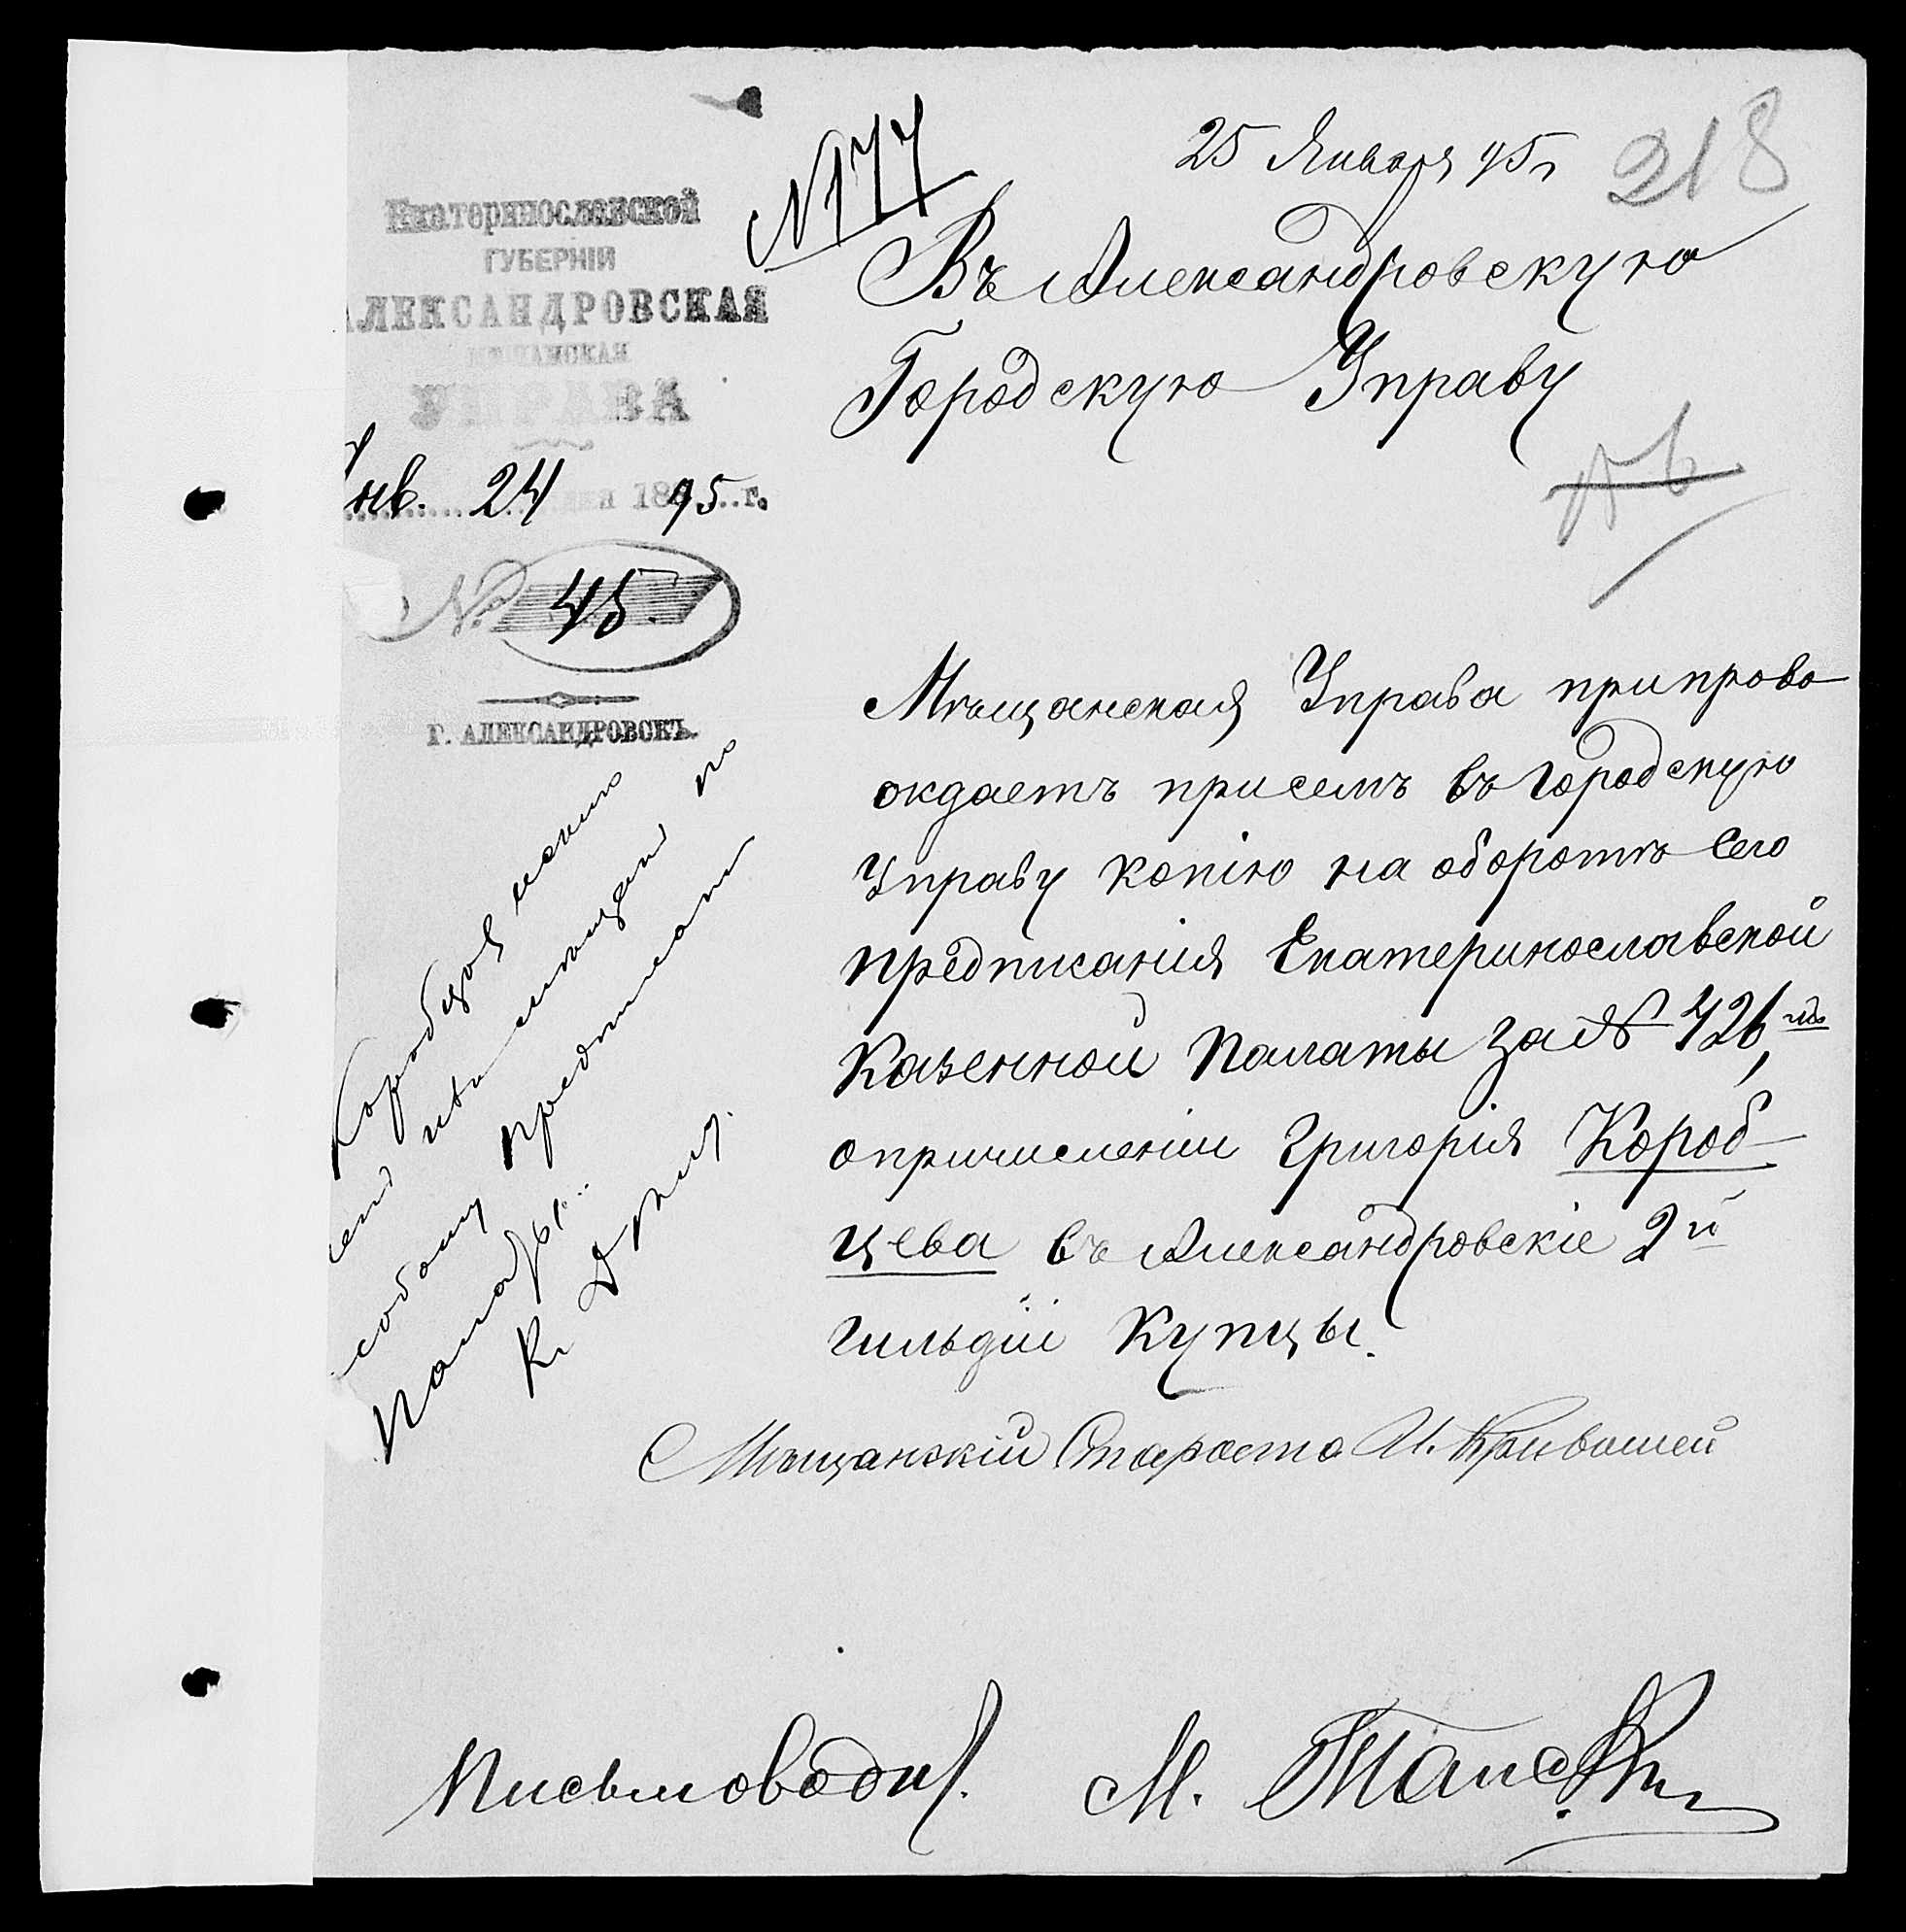 218
25 Января 95 г.
№177
Екатеринославской
ГУБЕРНІИ
АЛЕКСАНДРОВСКАЯ
МѢЩАНСКАЯ
УПРАВА
Янв. 24 дня 1895 г.
№ 45.
Г. АЛЕКСАНДРОВСКЪ.
Въ Александровскую
Городскую Управу
Мѣщанская Управа препрово
ждаетъ присемъ въ Городскую
Управу копію на оборотѣ сего
предписанія Екатеринославской
Казенной Палаты за №
опричисленіи Григорія Короб
цева въ Александровскіе 2й
гильдіи Купцы.
Мѣщанскій Староста И. Кривошей
Письмоводит. М.
Коробцов
по
особому предписанію
Палаты
К